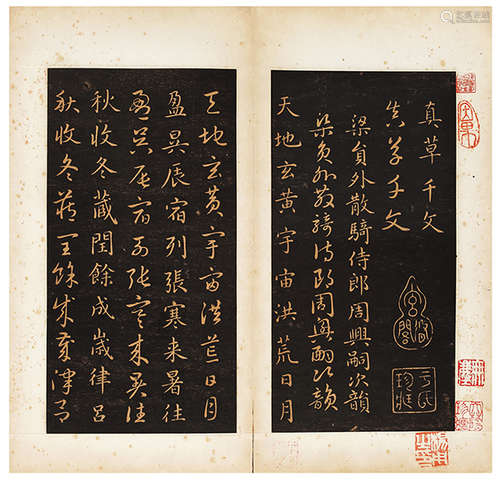 真草千文
真草千文
梁員外散騎侍郎周興嗣次韻
梁員外散騎侍郎周興嗣次韻
天地玄黃宇宙洪荒日月
天地玄黃宇宙洪荒日月
盈昃辰宿列張寒来暑往
盈昃辰宿列張寒来暑往
秋收冬藏閏餘成歲律呂
秋收冬藏閏餘成歲律呂